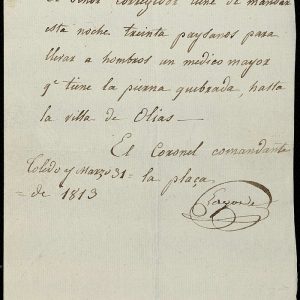 El Señor Corregidor tiene de mandar
esta noche treinta paysanos para
llevar a hombros un medico mayor
qe tiene la pierna quebrada, hasta
la villa de Olías —
El Coronel comandante
Toledo y Marzo 31 = la plaça
= de 1813